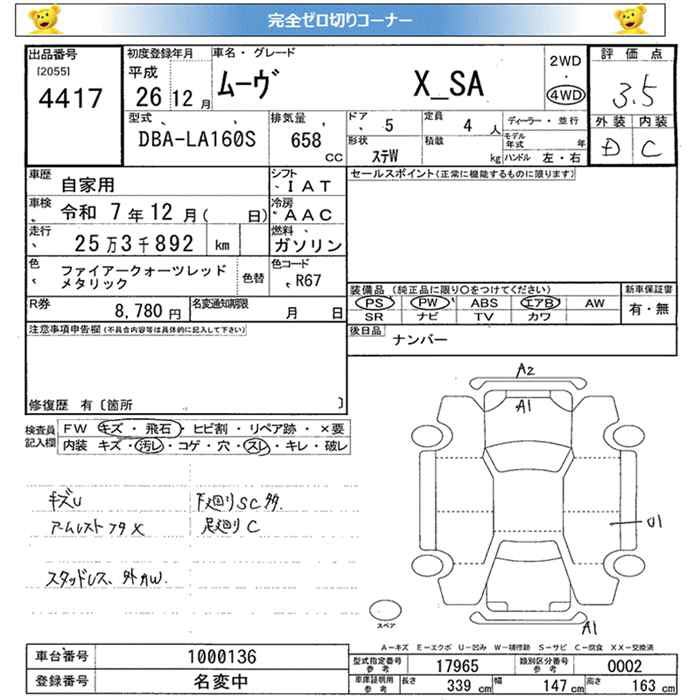 完全ゼロ切りコーナー
出品番号
[2055]
4417
初度登録年月
平成
26 12 月
車名・グレード
ムーヴ X_SA
2WD
・
4WD
評価点
3.5
外装 内装
D C
型式
DBA-LA160S
排気量
658 CC
ドア
5
定員
4 人
形状
ステW
積載
kg
ディーラー・並行
モデル年式 年
ハンドル 左・右
車歴
自家用
シフト
IAT
車検
令和 7年12月( 日)
冷房
AAC
走行
25万3千892 km
燃料
ガソリン
色
ファイアークォーツレッド
メタリック
色替
色コード
R67
R券
8,780 円
名変通知期限
月 日
セールスポイント(正常に機能するものに限ります)
装備品 (純正品に限り〇をつけてください)
PS PW ABS エアB AW
SR ナビ TV カワ
新車保証書
有・無
後日品
ナンバー
注意事項申告欄(不具合内容等は具体的に記入して下さい)
修復歴 有〔箇所 〕
検査員記入欄
FW キズ・飛石・ヒビ割・リペア跡・×要
内装 キズ・汚レ・コゲ・穴・スレ・キレ・破レ
キズU
アームレストフタ×
スタッドレス、外AW.
下廻りSC多.
足廻りC
A2
A1
U1
A1
スペア
A-キズ E-エクボ U-凹み W-補修跡 S-サビ C-腐食 XX-交換済
車台番号
1000136
登録番号
名変中
型式指定番号
参考
17965
類別区分番号
参考
0002
車庫証明用
参考
長さ 339 cm 幅 147 cm 高さ 163 cm